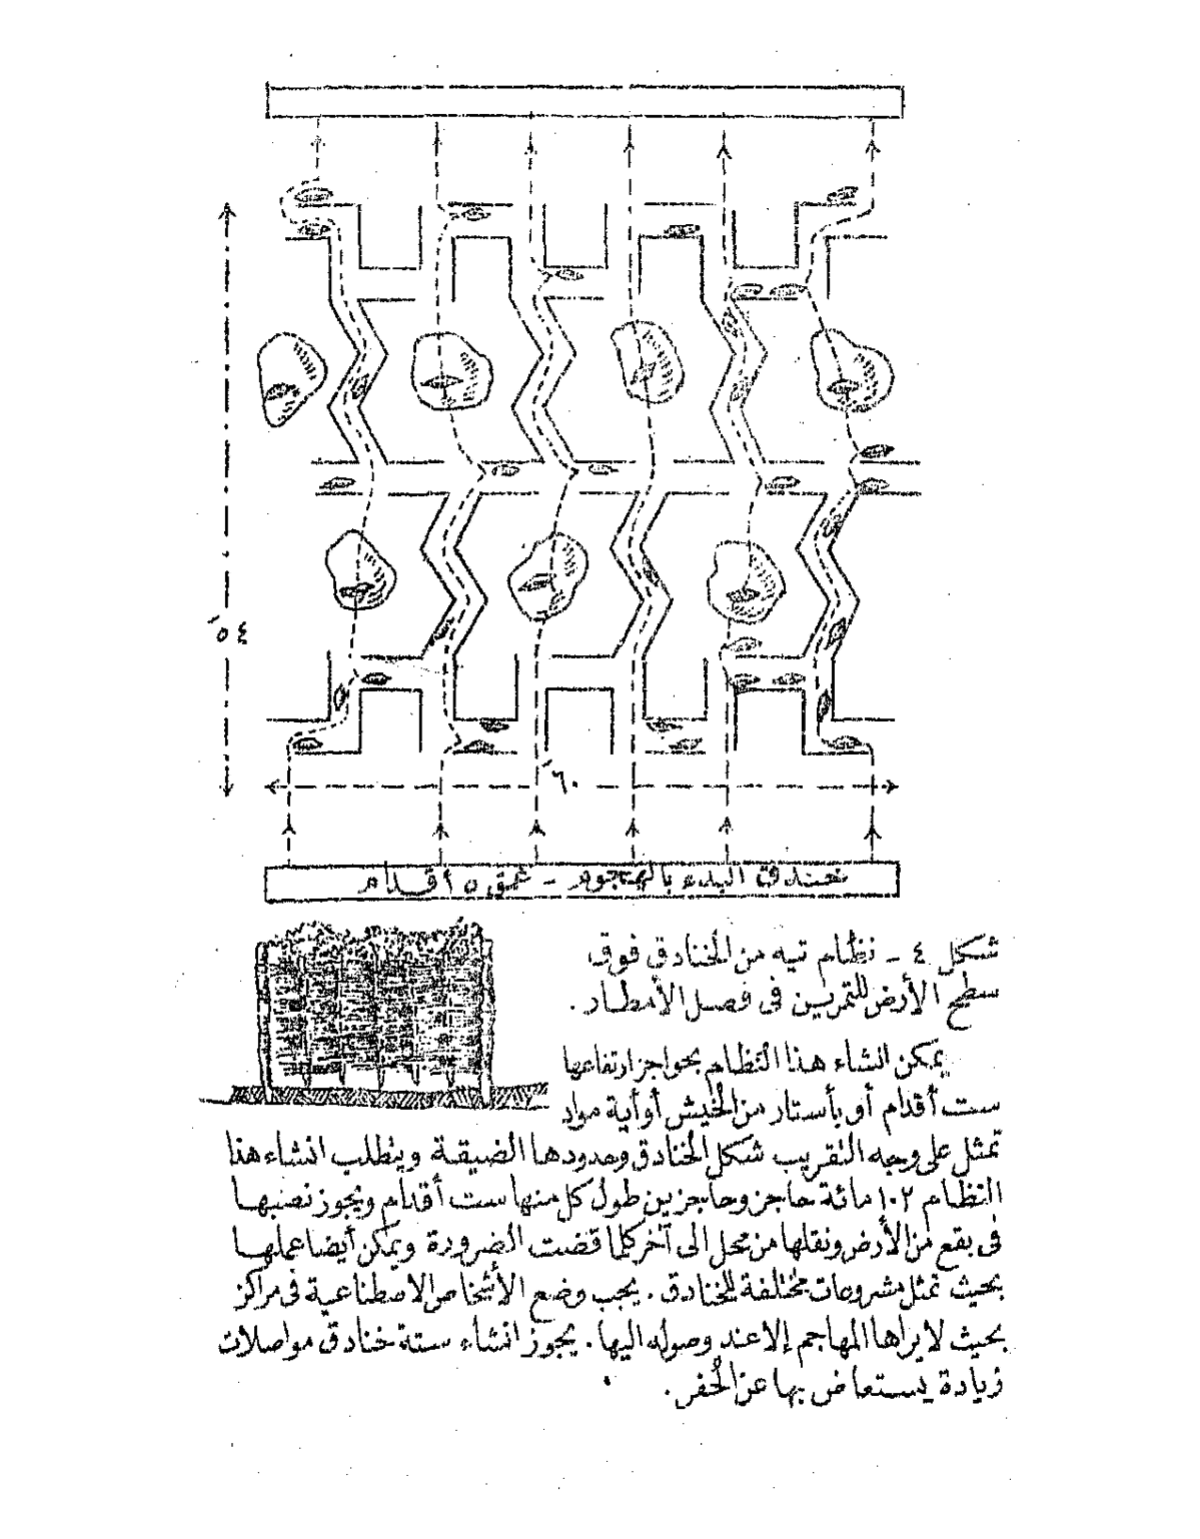 ٥٤َ
٦٠َ
خندق البدء بالهجوم - عمق ٥ أقدام
شكل ٤ - نظام تيه من الخنادق فوق
سطح الأرض للتمرين فى فصل الأمطار .
يمكن انشاء هذا النظام بحواجز ارتفاعها
ست أقدام أو بأستار من الخيش أو أية مواد
تمثل على وجه التقريب شكل الخنادق وحدودها الضيقة ويتطلب انشاء هذا
النظام ١٠٢ مائة حاجز وحاجزين طول كل منها ست أقدام ويجوز نصبها
فى بقع من الأرض ونقلها من محل الى آخر كلما قضت الضرورة ويمكن أيضا عملها
بحيث تمثل مشروعات مختلفة للخنادق . يجب وضع الأشخاص الاصطناعية فى مراكز
بحيث لا يراها المهاجم إلا عند وصوله اليها . يجوز انشاء ستة خنادق مواصلات
زيادة يستعاض بها عن الحفر .